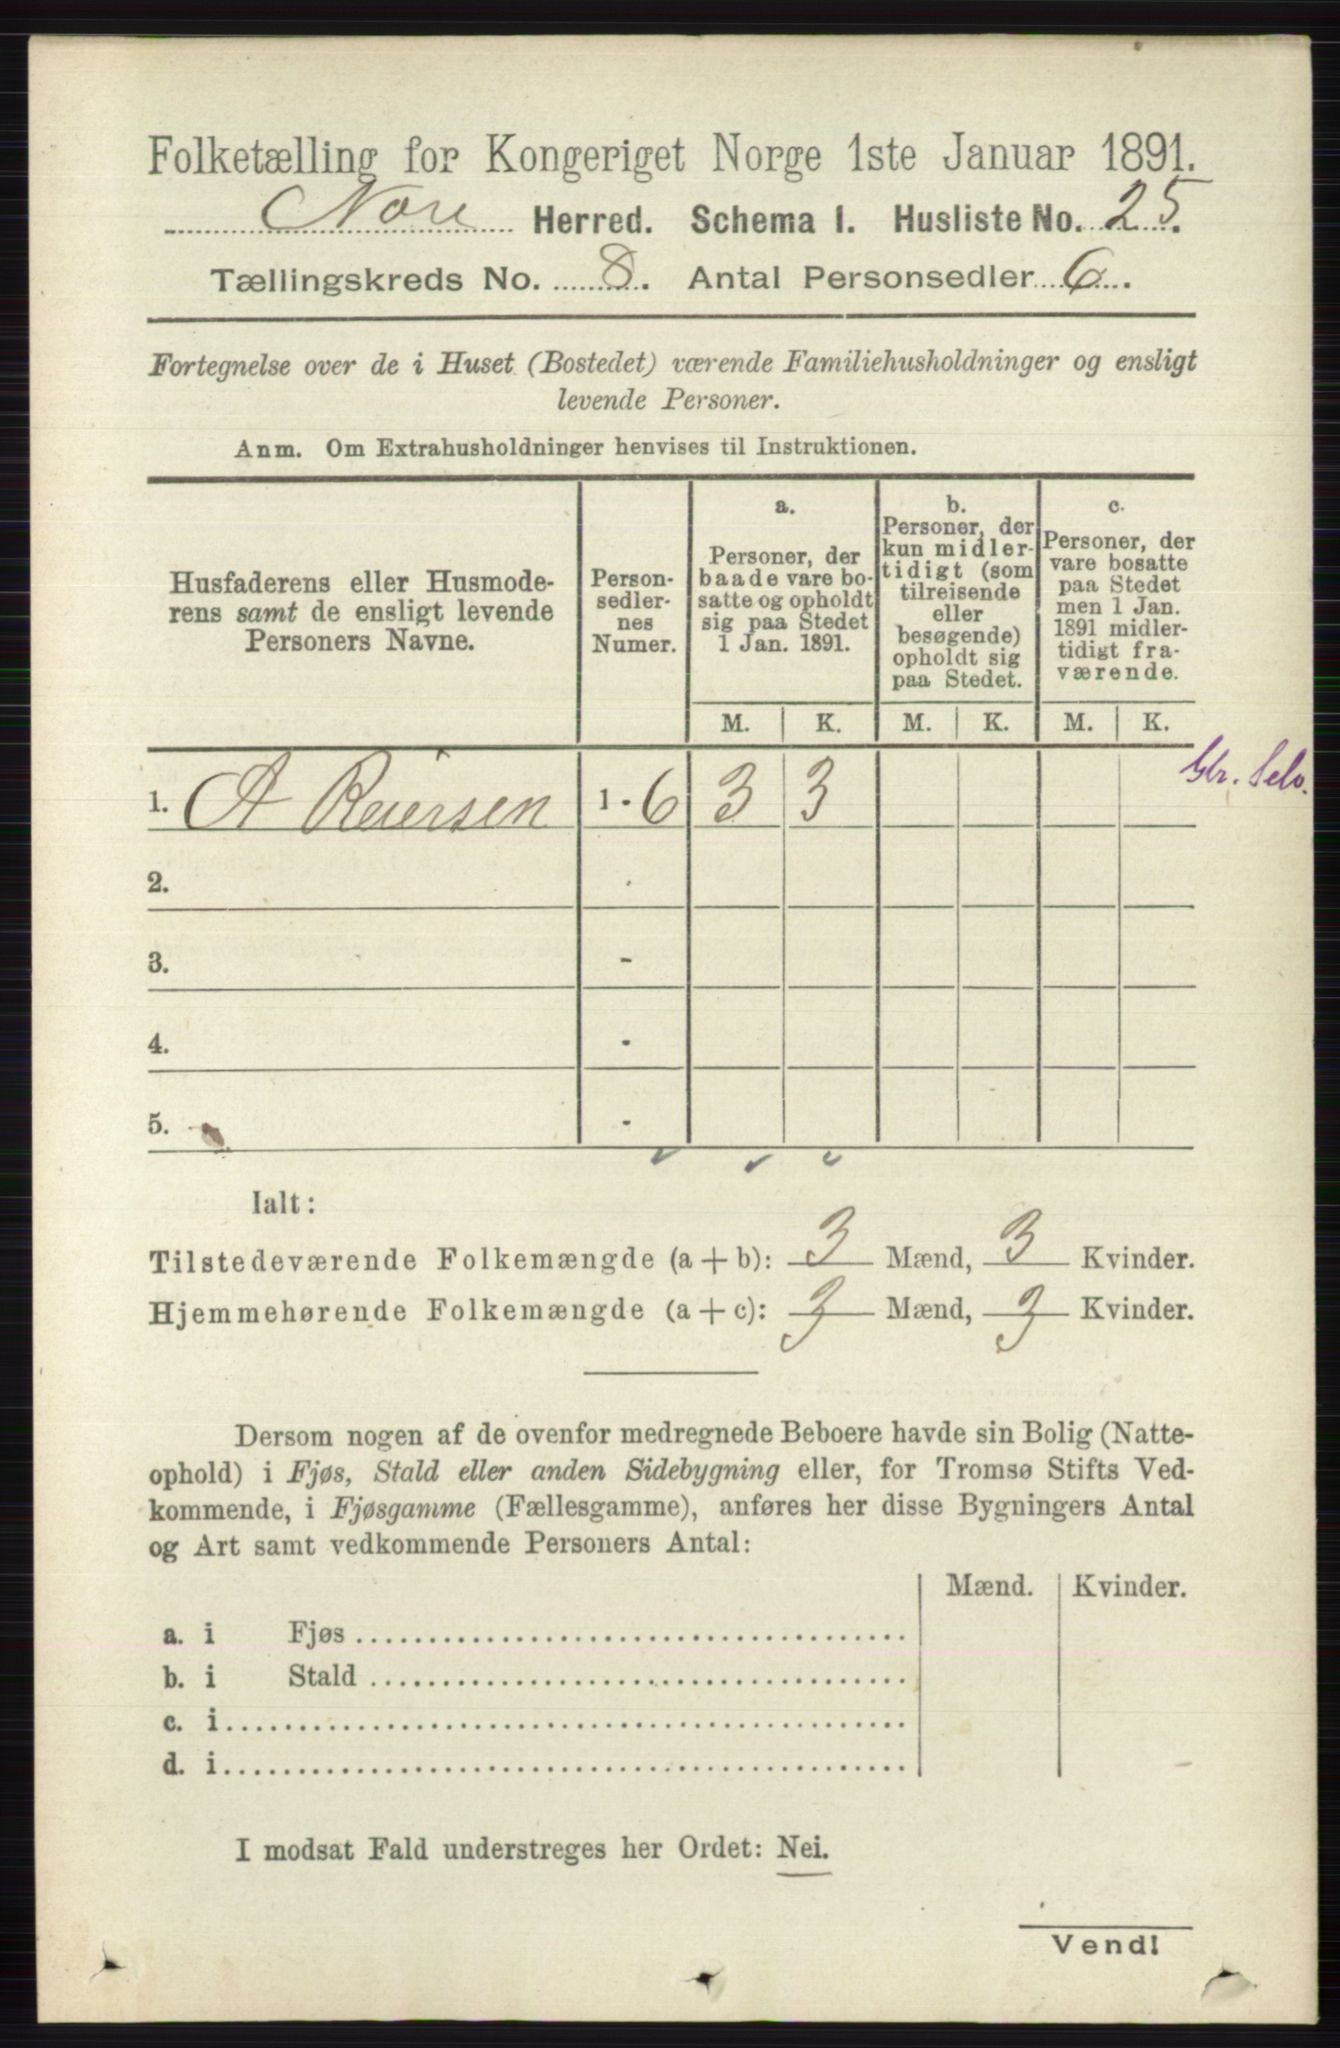 Folketælling for Kongeriget Norge 1ste Januar 1891.
Nore Herred. Schema I. Husliste No. 25.
Tællingskreds No. 8. Antal Personsedler 6.
Fortegnelse over de i Huset (Bostedet) værende Familiehusholdninger og ensligt
levende Personer.
Anm. Om Extrahusholdninger henvises til Instruktionen.
Husfaderens eller Husmode-
rens samt de ensligt levende
Personers Navne.
Person-
sedler-
nes
Numer.
a.
Personer, der
baade vare bo-
satte og opholdt
sig paa Stedet
1 Jan. 1891.
b.
Personer, der
kun midler-
tidigt (som
tilreisende
eller
besøgende)
opholdt sig
paa Stedet.
c.
Personer, der
vare bosatte
paa Stedet
men 1 Jan.
1891 midler-
tidigt fra-
værende.
M. K. M. K. M. K.
1. A Reiersen 1 - 6 3 3
2. -
3. -
4. -
5. -
Ialt:
Tilstedeværende Folkemængde (a + b): 3 Mænd, 3 Kvinder.
Hjemmehørende Folkemængde (a + c): 3 Mænd, 3 Kvinder.
Dersom nogen af de ovenfor medregnede Beboere havde sin Bolig (Natte-
ophold) i Fjøs, Stald eller anden Sidebygning eller, for Tromsø Stifts Ved-
kommende, i Fjøsgamme (Fællesgamme), anføres her disse Bygningers Antal
og Art samt vedkommende Personers Antal:
Mænd. Kvinder.
a. i Fjøs
b. i Stald
c. i
d. i
I modsat Fald understreges her Ordet: Nei.
Vend!